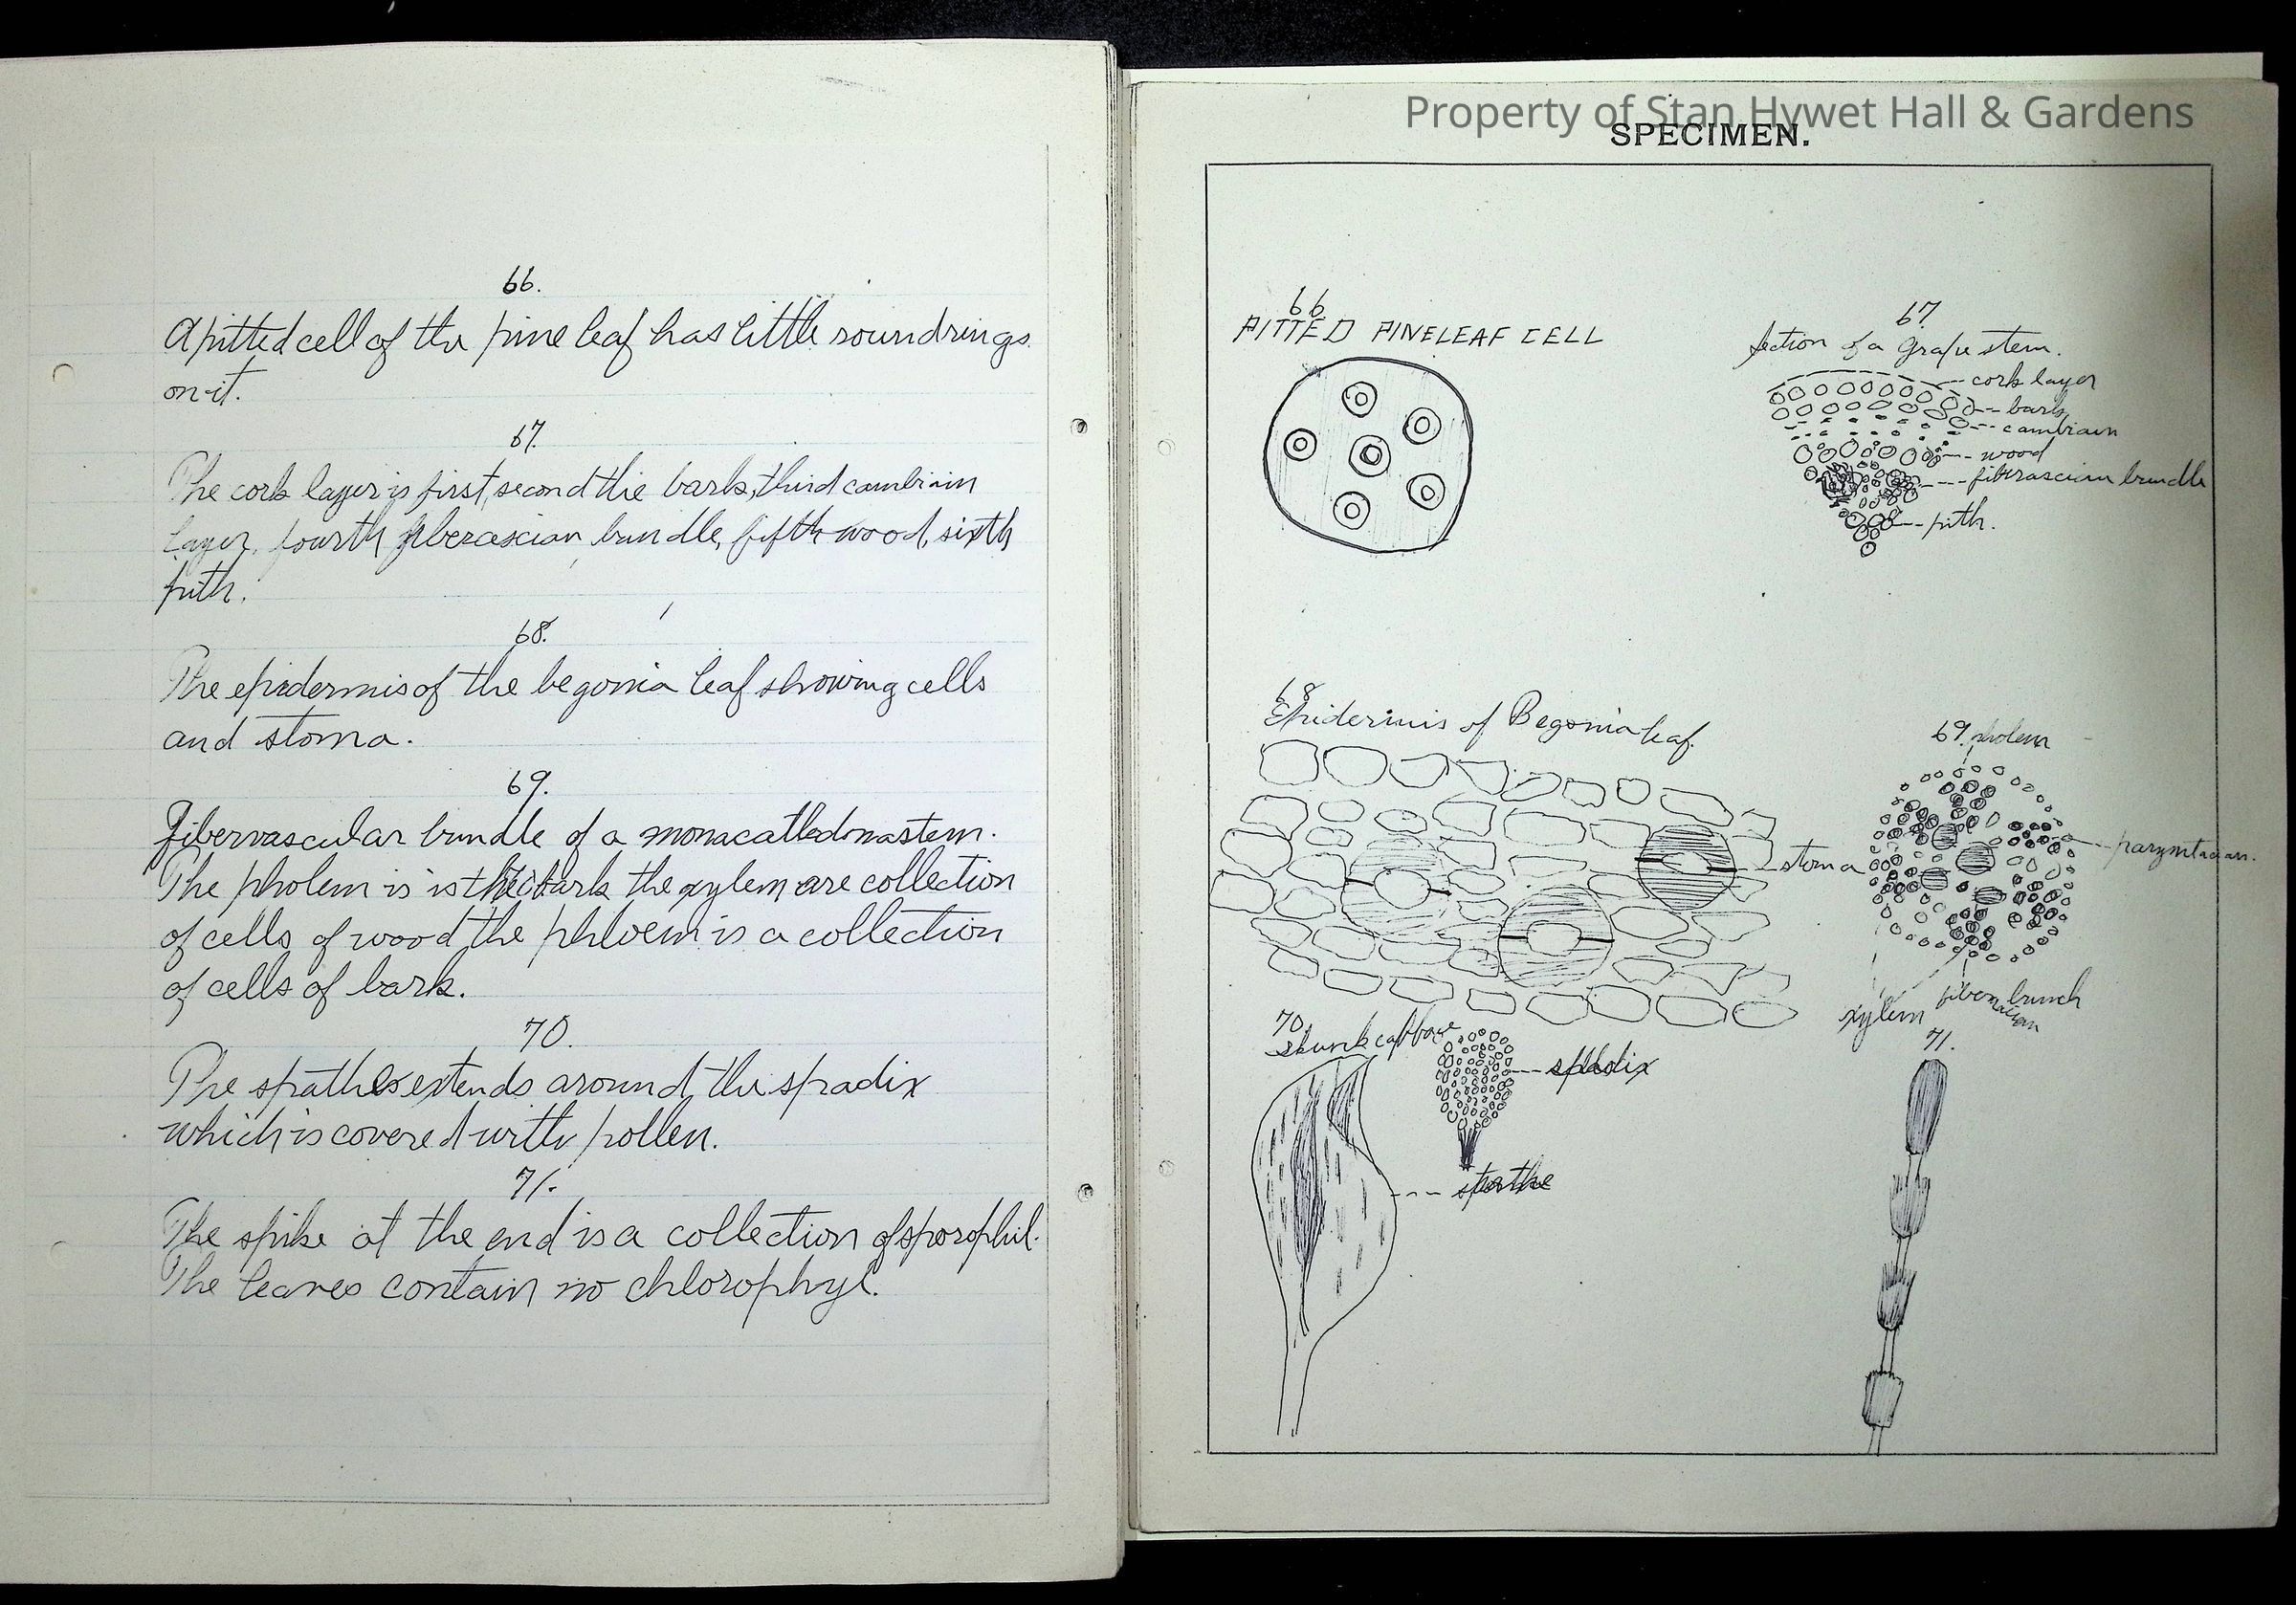 66.
A pitted cell of the pine leaf has little round rings
on it.
67.
The cork layer is first, second the bark, third cambiain
layer, fourth fiberascian bundle, fifth wood, sixth
pith.
68.
The epidermis of the begonia leaf showing cells
and stoma.
69.
Fibervascular bundle of a monacatledonastem.
The pholem is is the bark the xylem are collection
of cells of wood, the phloem is a collection
of cells of bark.
70.
The spathes extends around the spadix
which is covered with pollen.
71.
The spike at the end is a collection of sporophil.
The leaves contain no chlorophyl.
Property of Stan Hywet Hall & Gardens
SPECIMEN.
66
PITTED PINELEAF CELL
67.
Section of a Grape stem.
cork layer
bark
cambiain
wood
fiberascian bundle
pith.
68
Epidermis of Begonia leaf.
stoma
69. pholem
xylem
bunch
70.
Skunk cabbage
spadix
spathe
71.